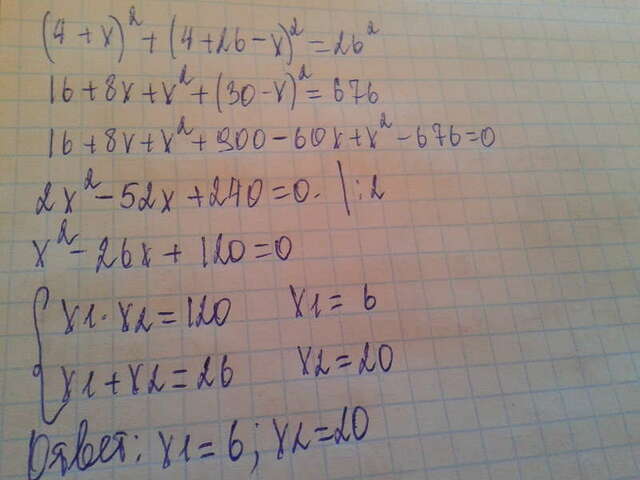 (4 + x)² + (4 + 26 - x)² = 26²
16 + 8x + x² + (30 - x)² = 676
16 + 8x + x² + 900 - 60x + x² - 676 = 0
2x² - 52x + 240 = 0. | : 2
x² - 26x + 120 = 0
{ x1 · x2 = 120 x1 = 6
x1 + x2 = 26 x2 = 20
Ответ: x1 = 6; x2 = 20